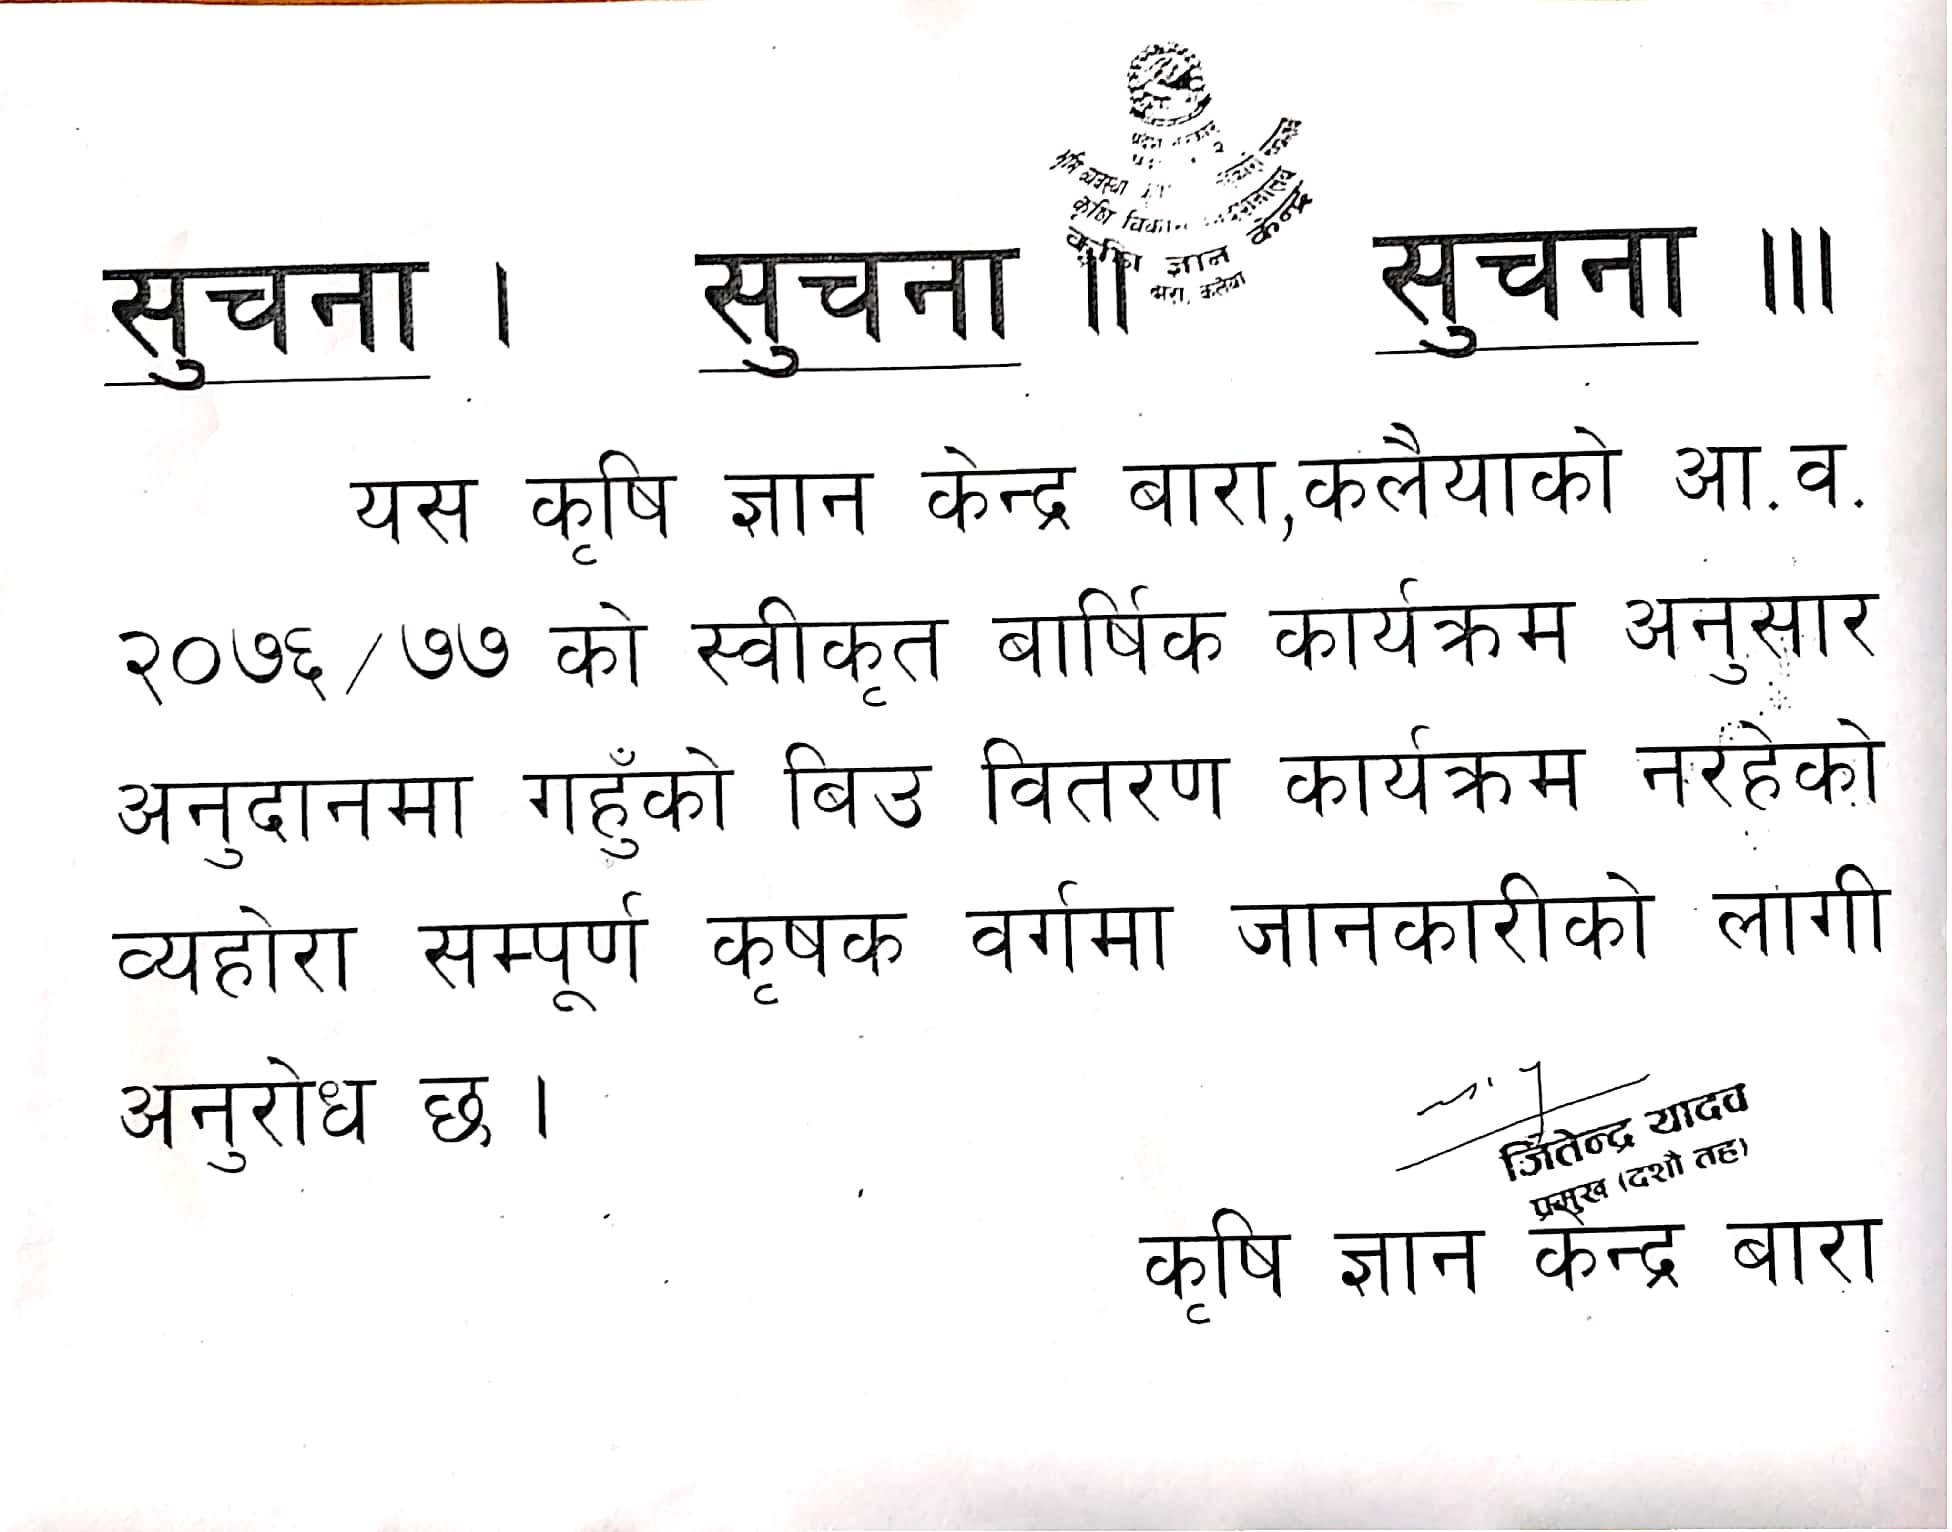 कृषि ज्ञान केन्द्र
सुचना । सुचना ॥ सुचना ।।।
यस कृषि ज्ञान केन्द्र बारा,कलैयाको आ.व.
२०७६/७७ को स्वीकृत बार्षिक कार्यक्रम अनुसार
अनुदानमा गहुँको बिउ वितरण कार्यक्रम नरहेको
व्यहोरा सम्पूर्ण कृषक वर्गमा जानकारीको लागी
अनुरोध छ ।
जितेन्द्र यादव
प्रमुख (दशौ तह)
कृषि ज्ञान केन्द्र बारा